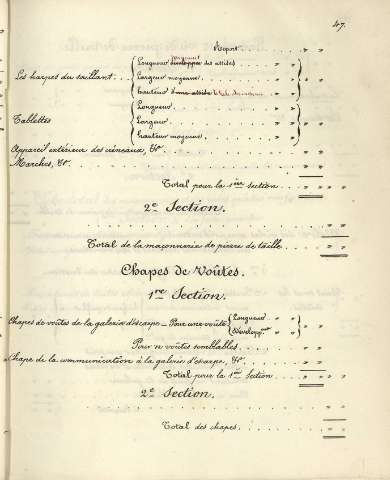 47.
Report . . . . . " "
Longueur développée des assises
Les harpes du saillant . . . Largeur moyenne . . . . . . " "
hauteur d'une assise
Longueur . . . . . .
Tablettes Largeur . . . . . . " "
hauteur moyenne . . . . .
Appareil extérieur des créneaux, &c. . . . . . " "
Marches, &c. . . . . . " "
Total pour la 1ère Section . . . . " "
2e Section.
. . . . . . " "
Total de la maçonnerie de pierre de taille . . . . . " "
Chapes de Voûtes.
1re Section.
Chapes de voûtes de la galerie d'escarpe _ Pour une voûte Longueur . . " "
Développt
Pour n voûtes semblables . . . . . " "
Chape de la communication à la galerie d'escarpe, &c. . . . . " "
Total pour la 1ère Section . . . . " "
2e Section.
. . . . . . " "
Total des chapes . . . . . " "